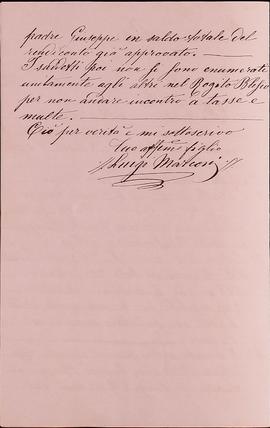 padre Giuseppe en saldo totale del
rendiconto già approvato.
I sudotti poi non si sono enumerate
unitamente agli altri nel Rogito Blasio
per non andare incontro a tasse e
multe.
Ciò per verità e mi sottoscrivo
Suo affmo figlio
Luigi Marconi